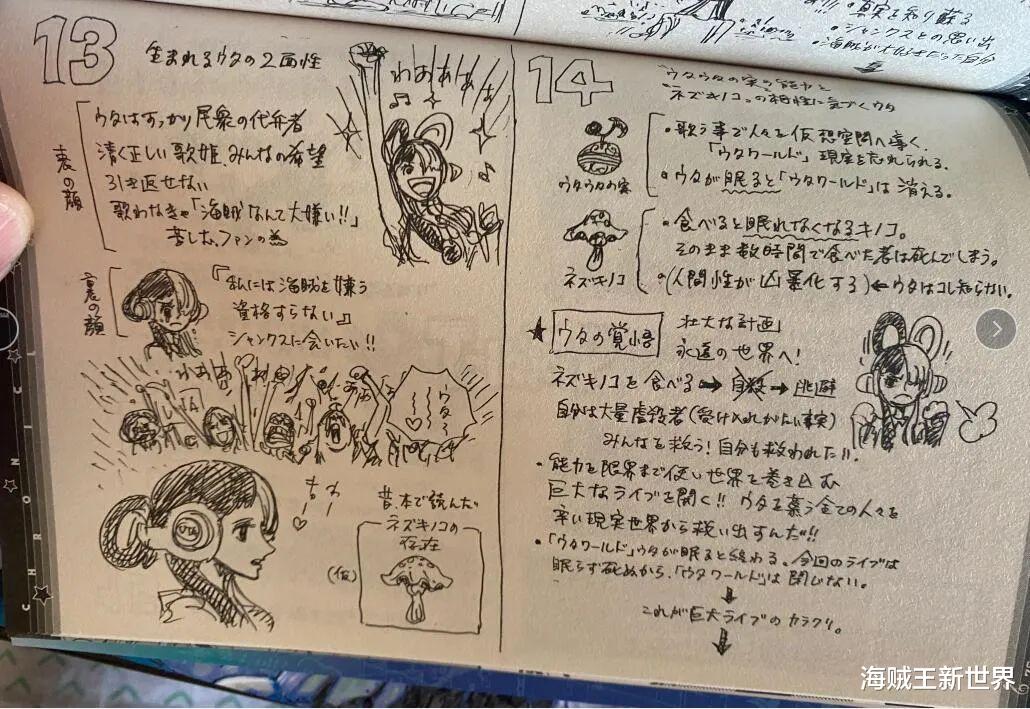 真実を知り蘇る
シャンクスとの思い出
海賊が大好きだった自分
13
生まれるウタの2面性
表の顔
ウタはすっかり民衆の代弁者
清く正しい歌姫、みんなの希望
引き返せない
歌わなきゃ「海賊なんて大嫌い!!」
苦しむ、ファンの為
わああああ
裏の顔
『私には海賊を嫌う
資格すらない』
シャンクスに会いたい!!
わああ
UTA
ウタ〜〜
UTA
昔、本で読んだ
ネズキノコの
存在
(仮)
14
ウタウタの実の能力と
ネズキノコの特性に気づくウタ
ウタウタの実
・歌う事で人々を仮想空間へ導く。
「ウタワールド」現実を忘れられる。
・ウタが眠ると「ウタワールド」は消える。
ネズキノコ
・食べると眠れなくなるキノコ。
そのまま数時間で食べた者は死んでしまう。
・(人間性が凶暴化する)←ウタはコレ知らない。
★ウタの覚悟
壮大な計画
永遠の世界へ!
ネズキノコを食べる→自殺→逃避
自分は大量虐殺者(受け入れがたい事実)
みんなを救う!自分も救われたい!!
・能力を限界まで使い世界を巻き込む
巨大なライブを開く!! ウタを慕う全ての人々を
辛い現実世界から救い出すんだ!!
・「ウタワールド」ウタが眠ると終わる。今回のライブは
眠らず死ぬから、「ウタワールド」は閉じない。
↓
これが巨大ライブのカラクリ。
↓
CHRONICLE
海贼王新世界